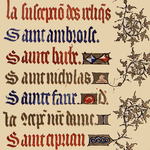 la susception des reliqs
Saint ambroise.
Sainte barbe.
Saint nicholas
Sainte fare. d.
la 9cept' n're dame.
Saint ciprian